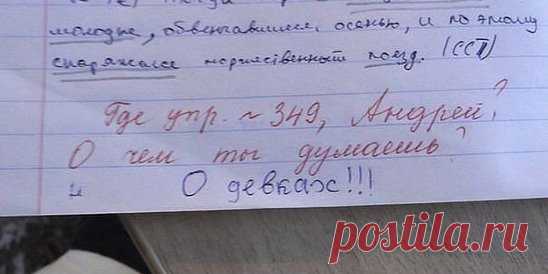 молодые, обвенчавшиеся осенью, и по этому
снаряжался торжественный поезд. (ССП)
Где упр. ~ 349, Андрей?
О чем ты думаешь?
О девках!!!
postila.ru